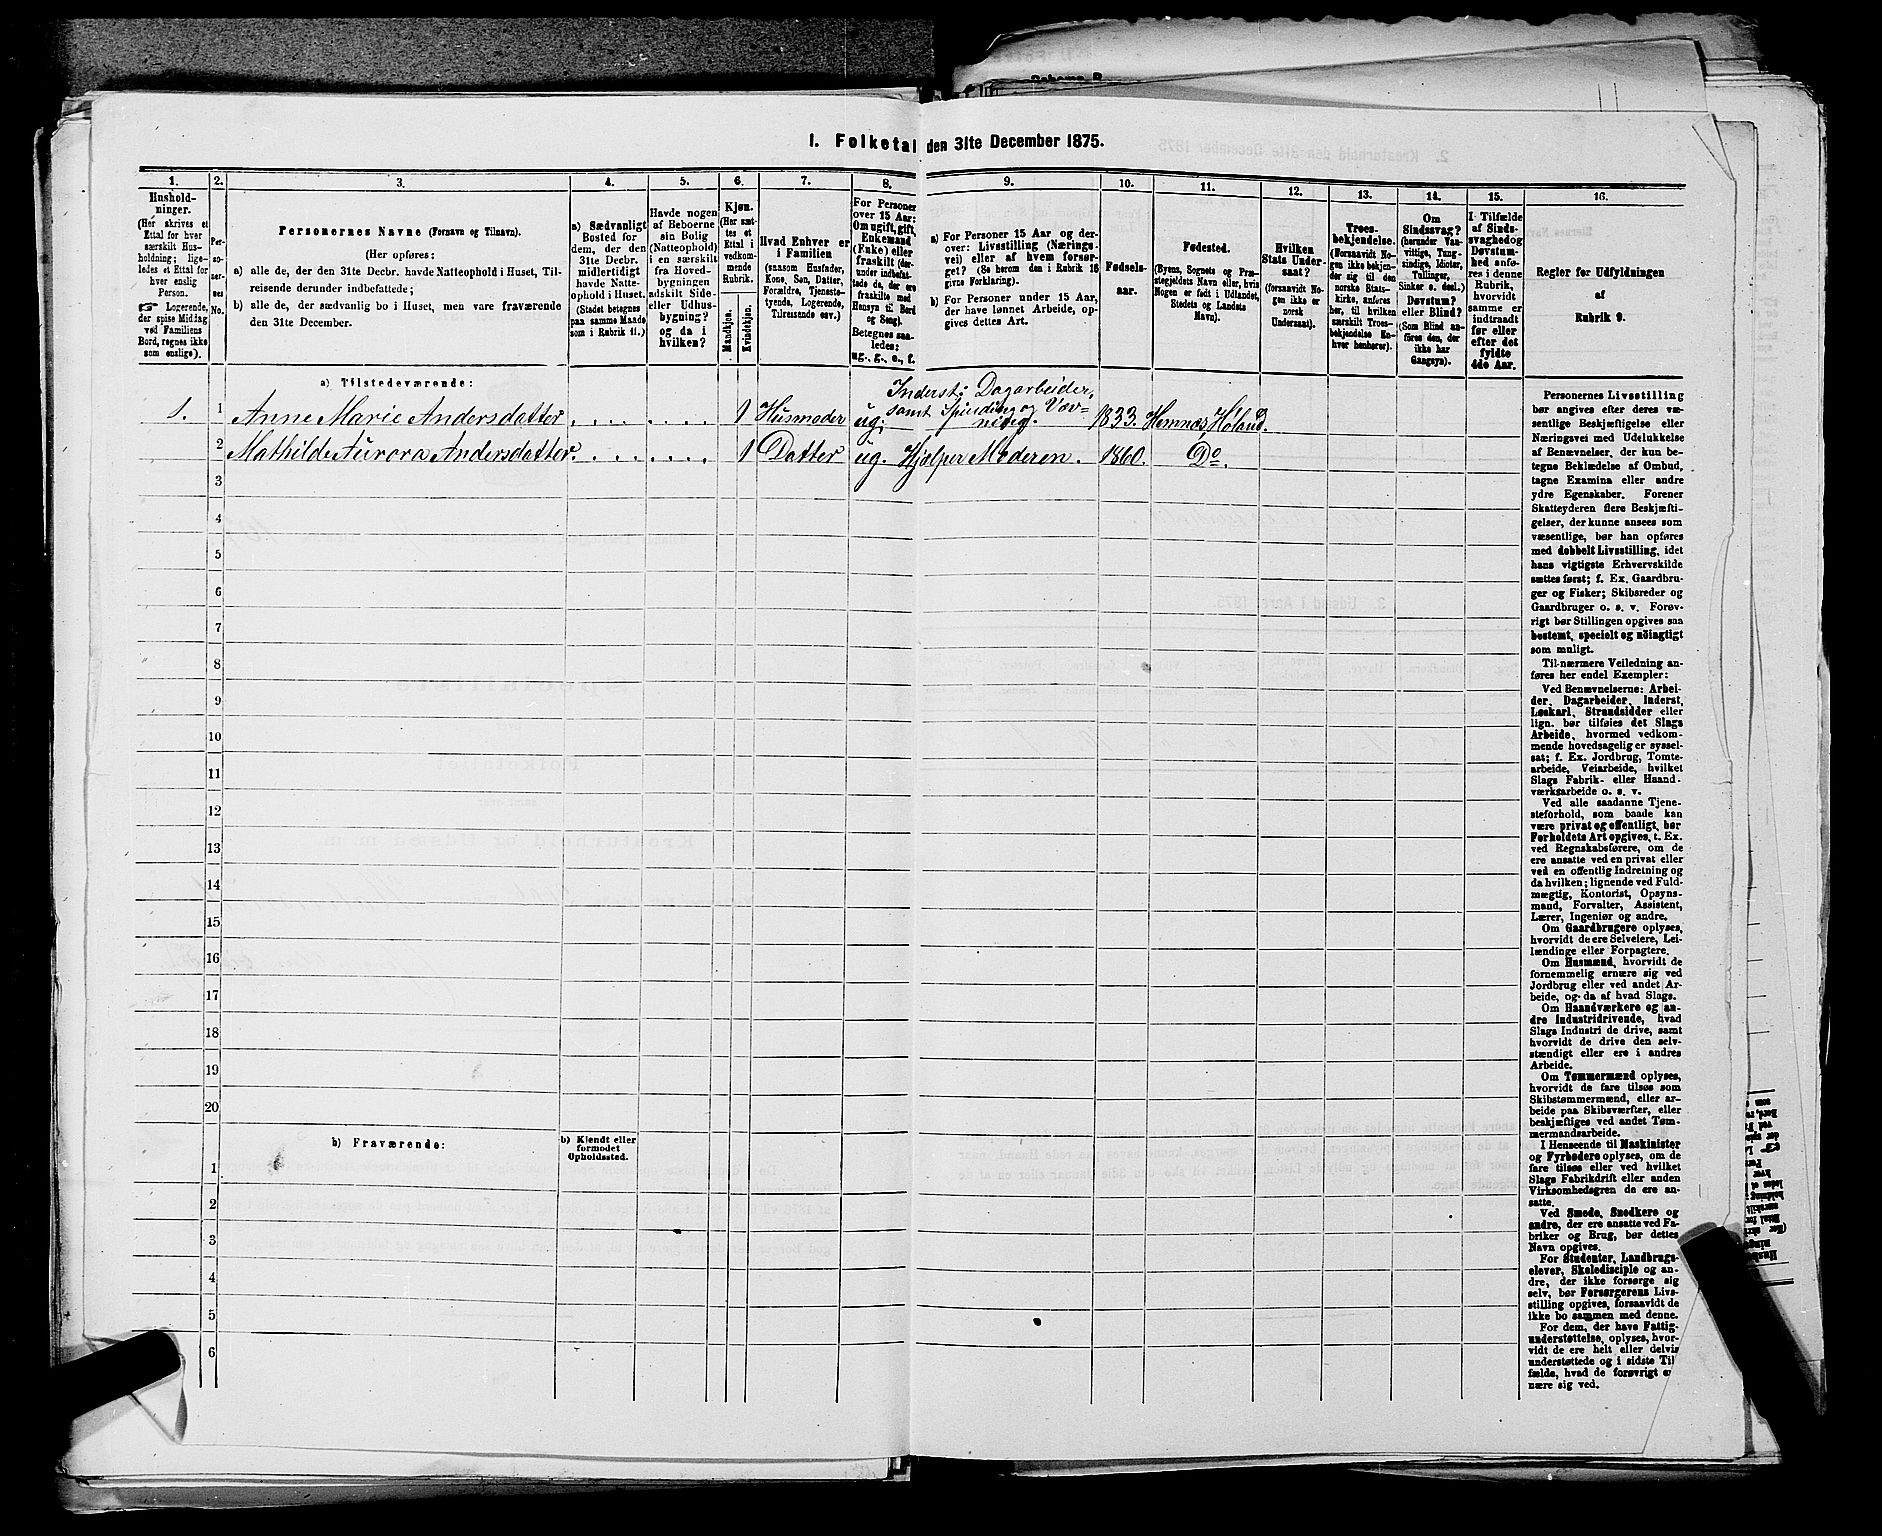 1. Folketal den 31te December 1875.
1.
2.
3.
4.
5.
6.
7.
8.
9.
10.
11.
12.
13.
14.
15.
16.
Hushold-
ninger.
(Her skrives et
Ettal for hver
særskilt Hus-
holdning; lige-
ledes et Ettal for
hver enslig
Person.
☞ Logerende,
der spise Middag
ved Familiens
Bord, regnes ikke
som enslige).
Per-
so-
ner-
nes
No.
Personernes Navne (Fornavn og Tilnavn).
(Her opføres:
a) alle de, der den 31te Decbr. havde Natteophold i Huset, Til-
reisende derunder indbefattede;
b) alle de, der sædvanlig bo i Huset, men vare fraværende
den 31te December.
a) Sædvanligt
Bosted for
dem, der den
31te Decbr.
midlertidigt
havde Natte-
ophold i Huset.
(Stedet betegnes
paa samme Maade
som i Rubrik 11.)
Havde nogen
af Beboerne
sin Bolig
(Natteophold)
i en særskilt
fra Hoved-
bygningen
adskilt Side-
eller Udhus-
bygning?
og da i
hvilken?
Kjøn.
(Her sæt-
tes et
Ettal i
vedkom-
mende
Rubrik.
Mandkjøn.
Kvindekjøn.
Hvad Enhver er
i Familien
(saasom Husfader,
Kone, Søn, Datter,
Forældre, Tjeneste-
tyende, Logerende,
Tilreisende osv.)
For Personer
over 15 Aar:
Om ugift, gift,
Enkemand
(Enke) eller
fraskilt (der-
under indbefat-
tede de, der ere
fraskilte med
Hensyn til Bord
og Seng).
Betegnes saa-
ledes:
ug., g., e., f.
a) For Personer 15 Aar og der-
over: Livsstilling (Nærings-
vei) eller af hvem forsør-
get? (Se herom den i Rubrik 16
givne Forklaring).
b) For Personer under 15 Aar,
der have lønnet Arbeide, op-
gives dettes Art.
Fødsels-
aar.
Fødested.
(Byens, Sognets og Præ-
stegjeldets Navn eller, hvis
Nogen er født i Udlandet,
Stedets og Landets
Navn).
Hvilken
Stats Under-
saat?
(forsaavidt No-
gen ikke er
norsk
Undersaat).
Troes-
bekjendelse.
(Forsaavidt No-
gen ikke bekjen-
der sig til den
norske Stats-
kirke, anføres
her, til hvilken
særskilt Troes-
bekjendelse En-
hver henhører).
Om
Sindssvag?
(herunder Van-
vittige, Tung-
sindige, Idioter,
Tullinger,
Sinker o. desl.)
Døvstum?
eller Blind?
(Som Blind an-
føres den, der
ikke har
Gangsyn).
I Tilfælde
af Sinds-
svaghed og
Døvstum-
hed anfø-
res i denne
Rubrik,
hvorvidt
samme er
indtraadt
før eller
efter det
fyldte
4de Aar.
Regler for Udfyldningen
af
Rubrik 9.
a) Tilstedeværende:
Inderst: Dagarbeider,
1. 1 Anne Marie Andersdatter 1 Husmoder ug: samt Spinding og Væv-
ning. 1833. Hemnes, Høland.
2 Mathilde Aurora Andersdatter. 1 Datter ug. Hjælper Moderen. 1860. Do.
3
4
5
6
7
8
9
10
11
12
13
14
15
16
17
18
19
20
b) Fraværende:
b) Kjendt eller
formodet
Opholdssted.
1
2
3
4
5
6
Personernes Livsstilling
bør angives efter deres væ-
sentlige Beskjæftigelse eller
Næringsvei med Udelukkelse
af Benævnelser, der kun be-
tegne Beklædelse af Ombud,
tagne Examina eller andre
ydre Egenskaber. Forener
Skatteyderen flere Beskjæfti-
gelser, der kunne ansees som
væsentlige, bør han opføres
med dobbelt Livsstilling, idet
hans vigtigste Erhvervskilde
sættes først; f. Ex. Gaardbru-
ger og Fisker; Skibsreder og
Gaardbruger o. s. v. Forøv-
rigt bør Stillingen opgives saa
bestemt, specielt og nöiagtigt
som muligt.
Til nærmere Veiledning an-
føres her endel Exempler:
Ved Benævnelserne: Arbei-
der, Dagarbeider, Inderst,
Løskarl, Strandsidder eller
lign. bør tilføies det Slags
Arbeide, hvormed vedkom-
mende hovedsagelig er syssel-
sat; f. Ex. Jordbrug, Tomte-
arbeide, Veiarbeide, hvilket
Slags Fabrik- eller Haand-
værksarbeide o. s. v.
Ved alle saadanne Tjene-
steforhold, som baade kan
være privat og offentligt, bør
Forholdets Art opgives, t. Ex.
ved Regnskabsførere, om de
ere ansatte ved en privat eller
ved en offentlig Indretning og
da hvilken; lignende ved Fuld-
mægtig, Kontorist, Opsyns-
mand, Forvalter, Assistent,
Lærer, Ingeniør og andre.
Om Gaardbrugere oplyses,
hvorvidt de ere Selveiere, Lei-
lændinge eller Forpagtere.
Om Husmænd, hvorvidt de
fornemmelig ernære sig ved
Jordbrug eller ved andet Ar-
beide, og da af hvad Slags.
Om Haandværkere og an-
dre Industridrivende, hvad
Slags Industri de drive, samt
hvorvidt de drive den selv-
stændigt eller ere i andres
Arbeide.
Om Tømmermænd oplyses,
hvorvidt de fare tilsøs som
Skibstømmermænd, eller ar-
beide paa Skibsværfter, eller
beskjæftiges ved andet Tøm-
mermandsarbeide.
I Henseende til Maskinister
og Fyrbødere oplyses, om de
fare tilsøs eller ved hvilket
Slags Fabrikdrift eller anden
Virksomhedsgren de ere an-
satte.
Ved Smede, Snedkere og
andre, der ere ansatte ved Fa-
briker og Brug, bør dettes
Navn opgives.
For Studenter, Landbrugs-
elever, Skoledisciple og an-
dre, der ikke forsørge sig
selv, bør Forsørgerens Livs-
stilling opgives, forsaavidt de
ikke bo sammen med denne.
For dem, der have Fattig-
understøttelse, oplyses, hvor-
vidt de ere helt eller delvis
understøttede og i sidste Til-
fælde, hvad de forøvrigt er-
nære sig ved.